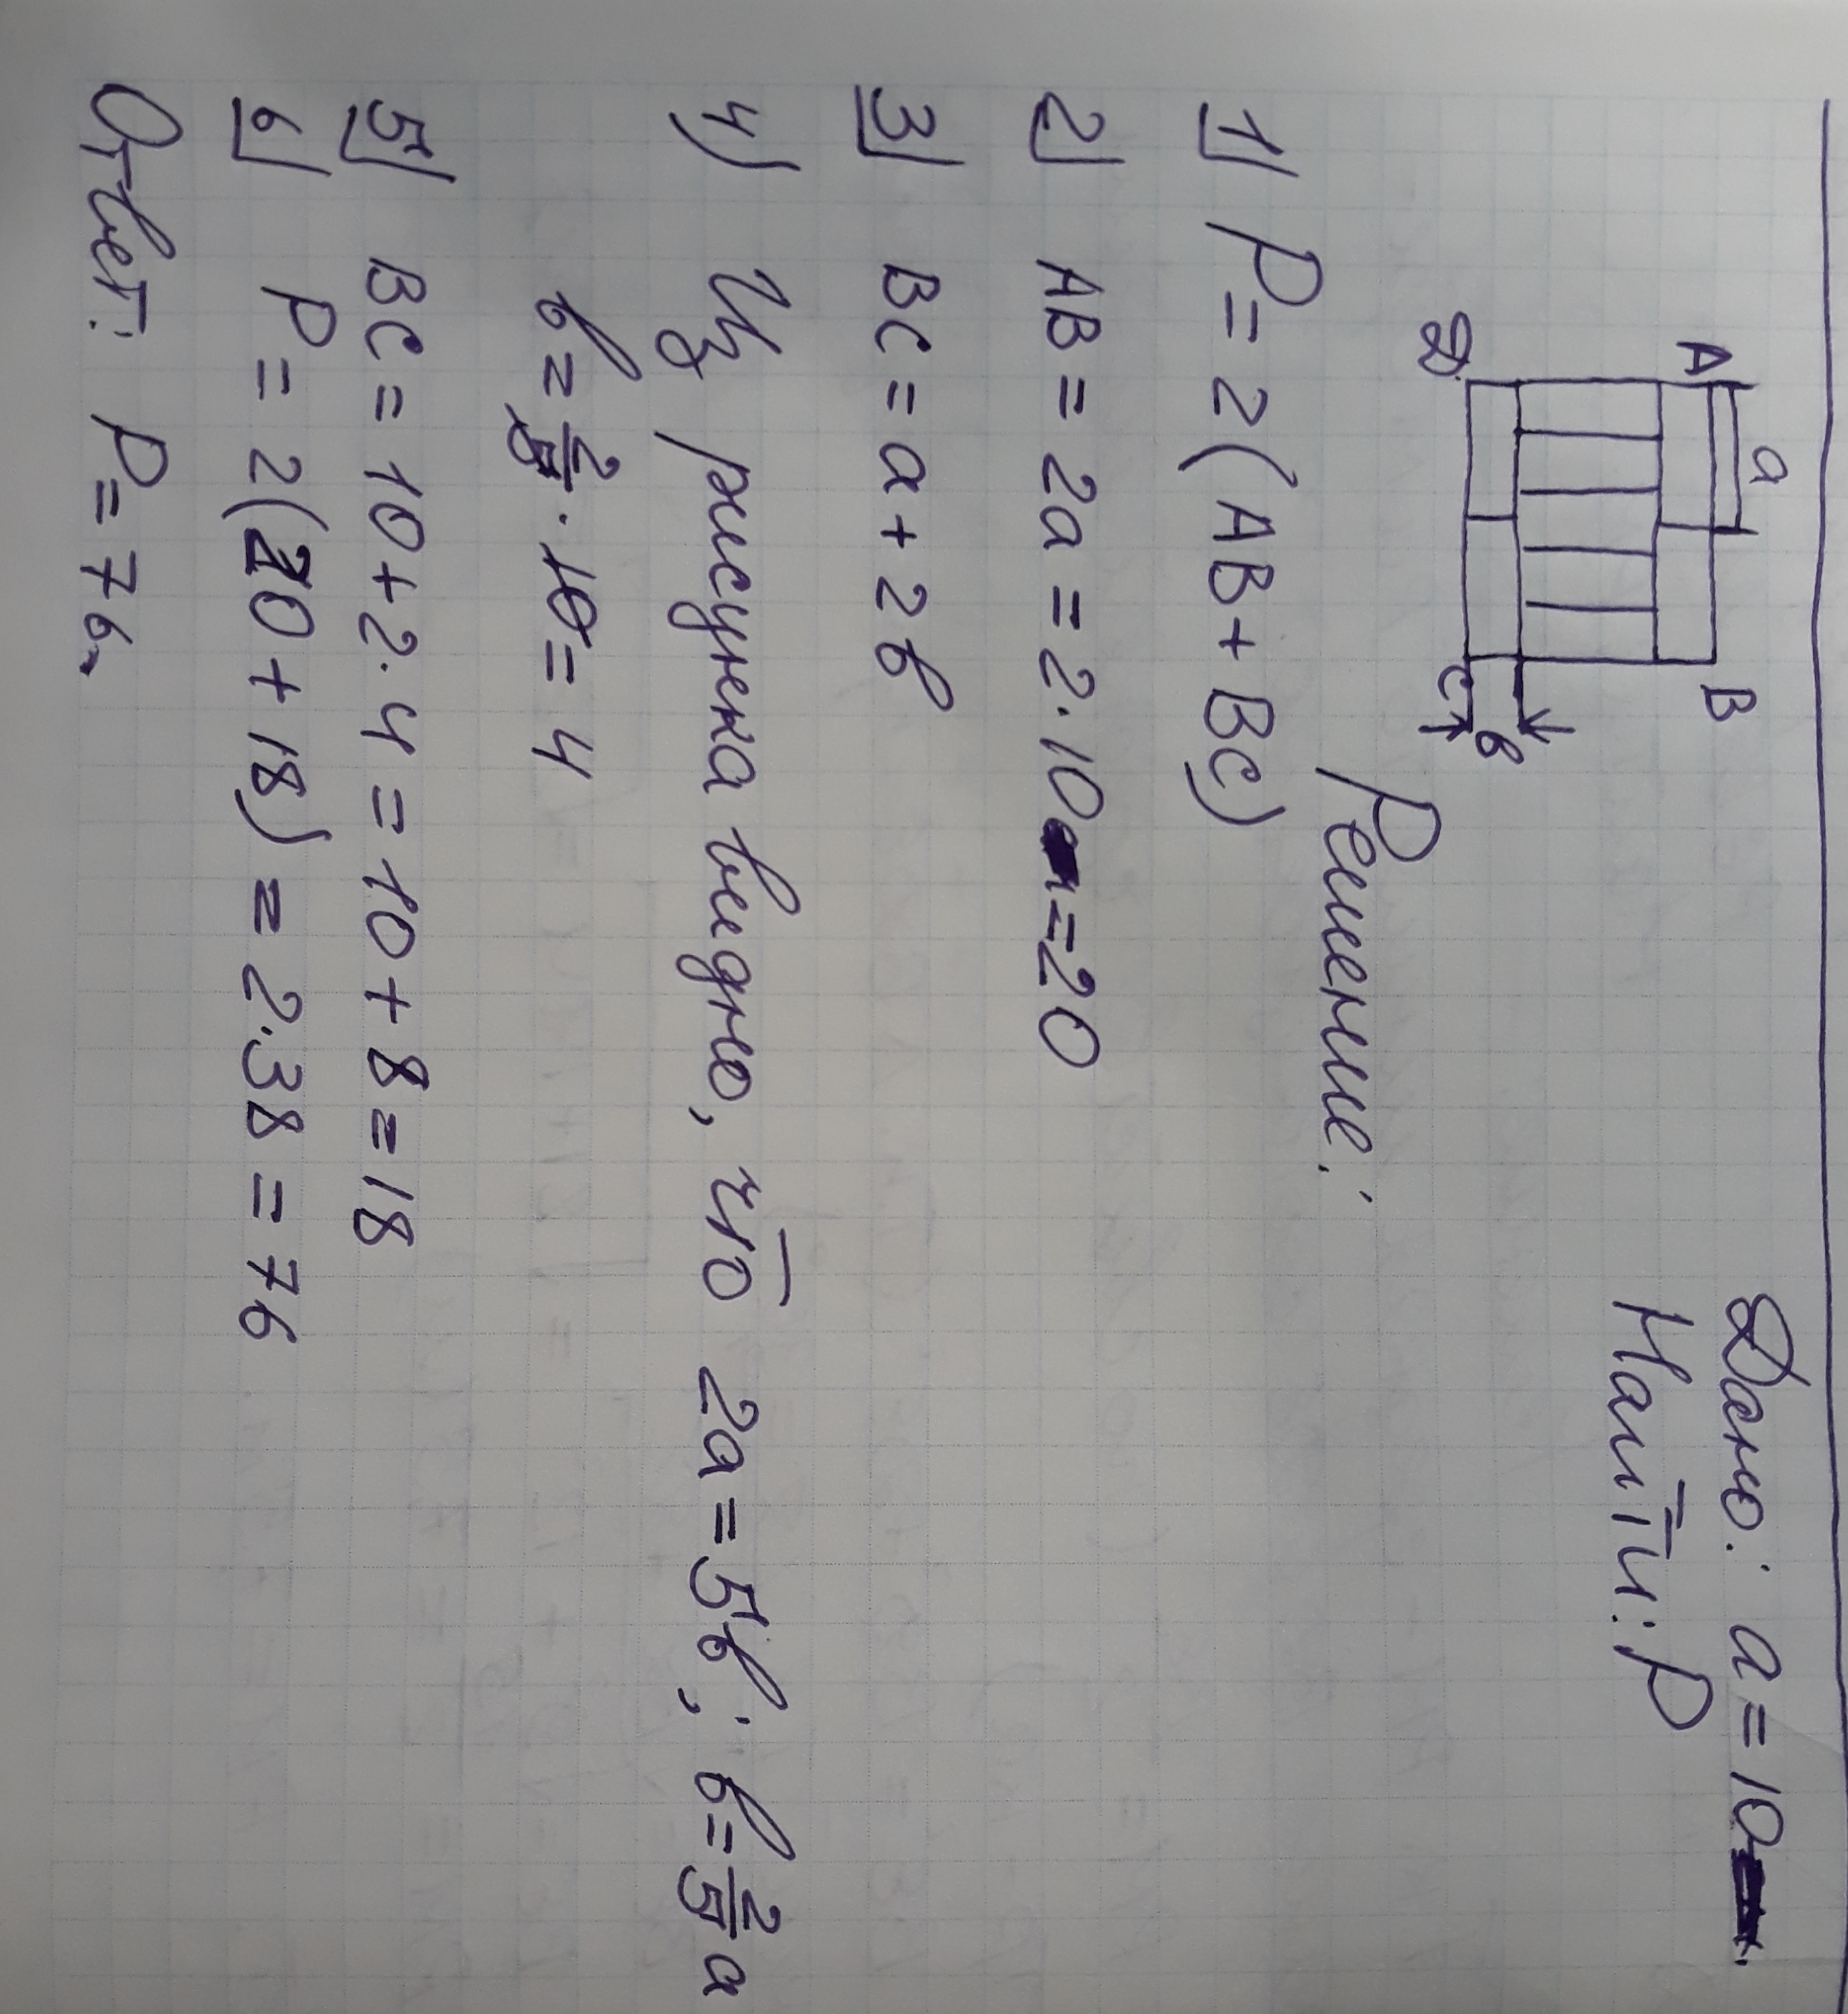 Дано: a = 10
Найти: P
a
A B
D C в
Решение:
1) P = 2(AB + BC)
2) AB = 2a = 2·10 = 20
3) BC = a + 2в
4) Из рисунка видно, что 2a = 5в; в = 2/5 a
в = 2/5 · 10 = 4
5) BC = 10 + 2·4 = 10 + 8 = 18
6) P = 2(20 + 18) = 2·38 = 76
Ответ: P = 76.